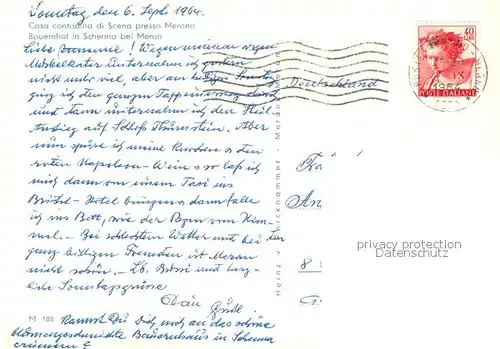 Sonntag den 6. Sept. 1964.
Casa contadina di Scena presso Merano
Bauernhof in Schenna bei Meran
Liebe ! Wegen meinem
Muskelkater unternahm ich gestern
nicht sehr viel, aber am heutigen Sonntag
ging ich den ganzen Tappeinerweg durch
und dann unternahm ich den Steil-
Anstieg auf Schloß Thurnstein. Aber
nun spüre ich meine Knochen u. den
roten Napoleon-Wein u. so laß ich
mich dann von einem Taxi ins
Bristol-Hotel bringen u. dann falle
ich ins Bett, wie der Regen vom Him-
mel. - Bei schlechtem Wetter und bei den
ganz billigen Fremden ist Meran
nicht schön. - Lb. Bussi und herz-
liche Sonntagsgrüsse
Dein
M 180 Kannst Du Dich noch an das schöne
blumengeschmückte Bauernhaus in Schenna
erinnern?
Heinz v. Merano
Deutschland
40
1964
POSTE ITALIANE
privacy protection
Datenschutz